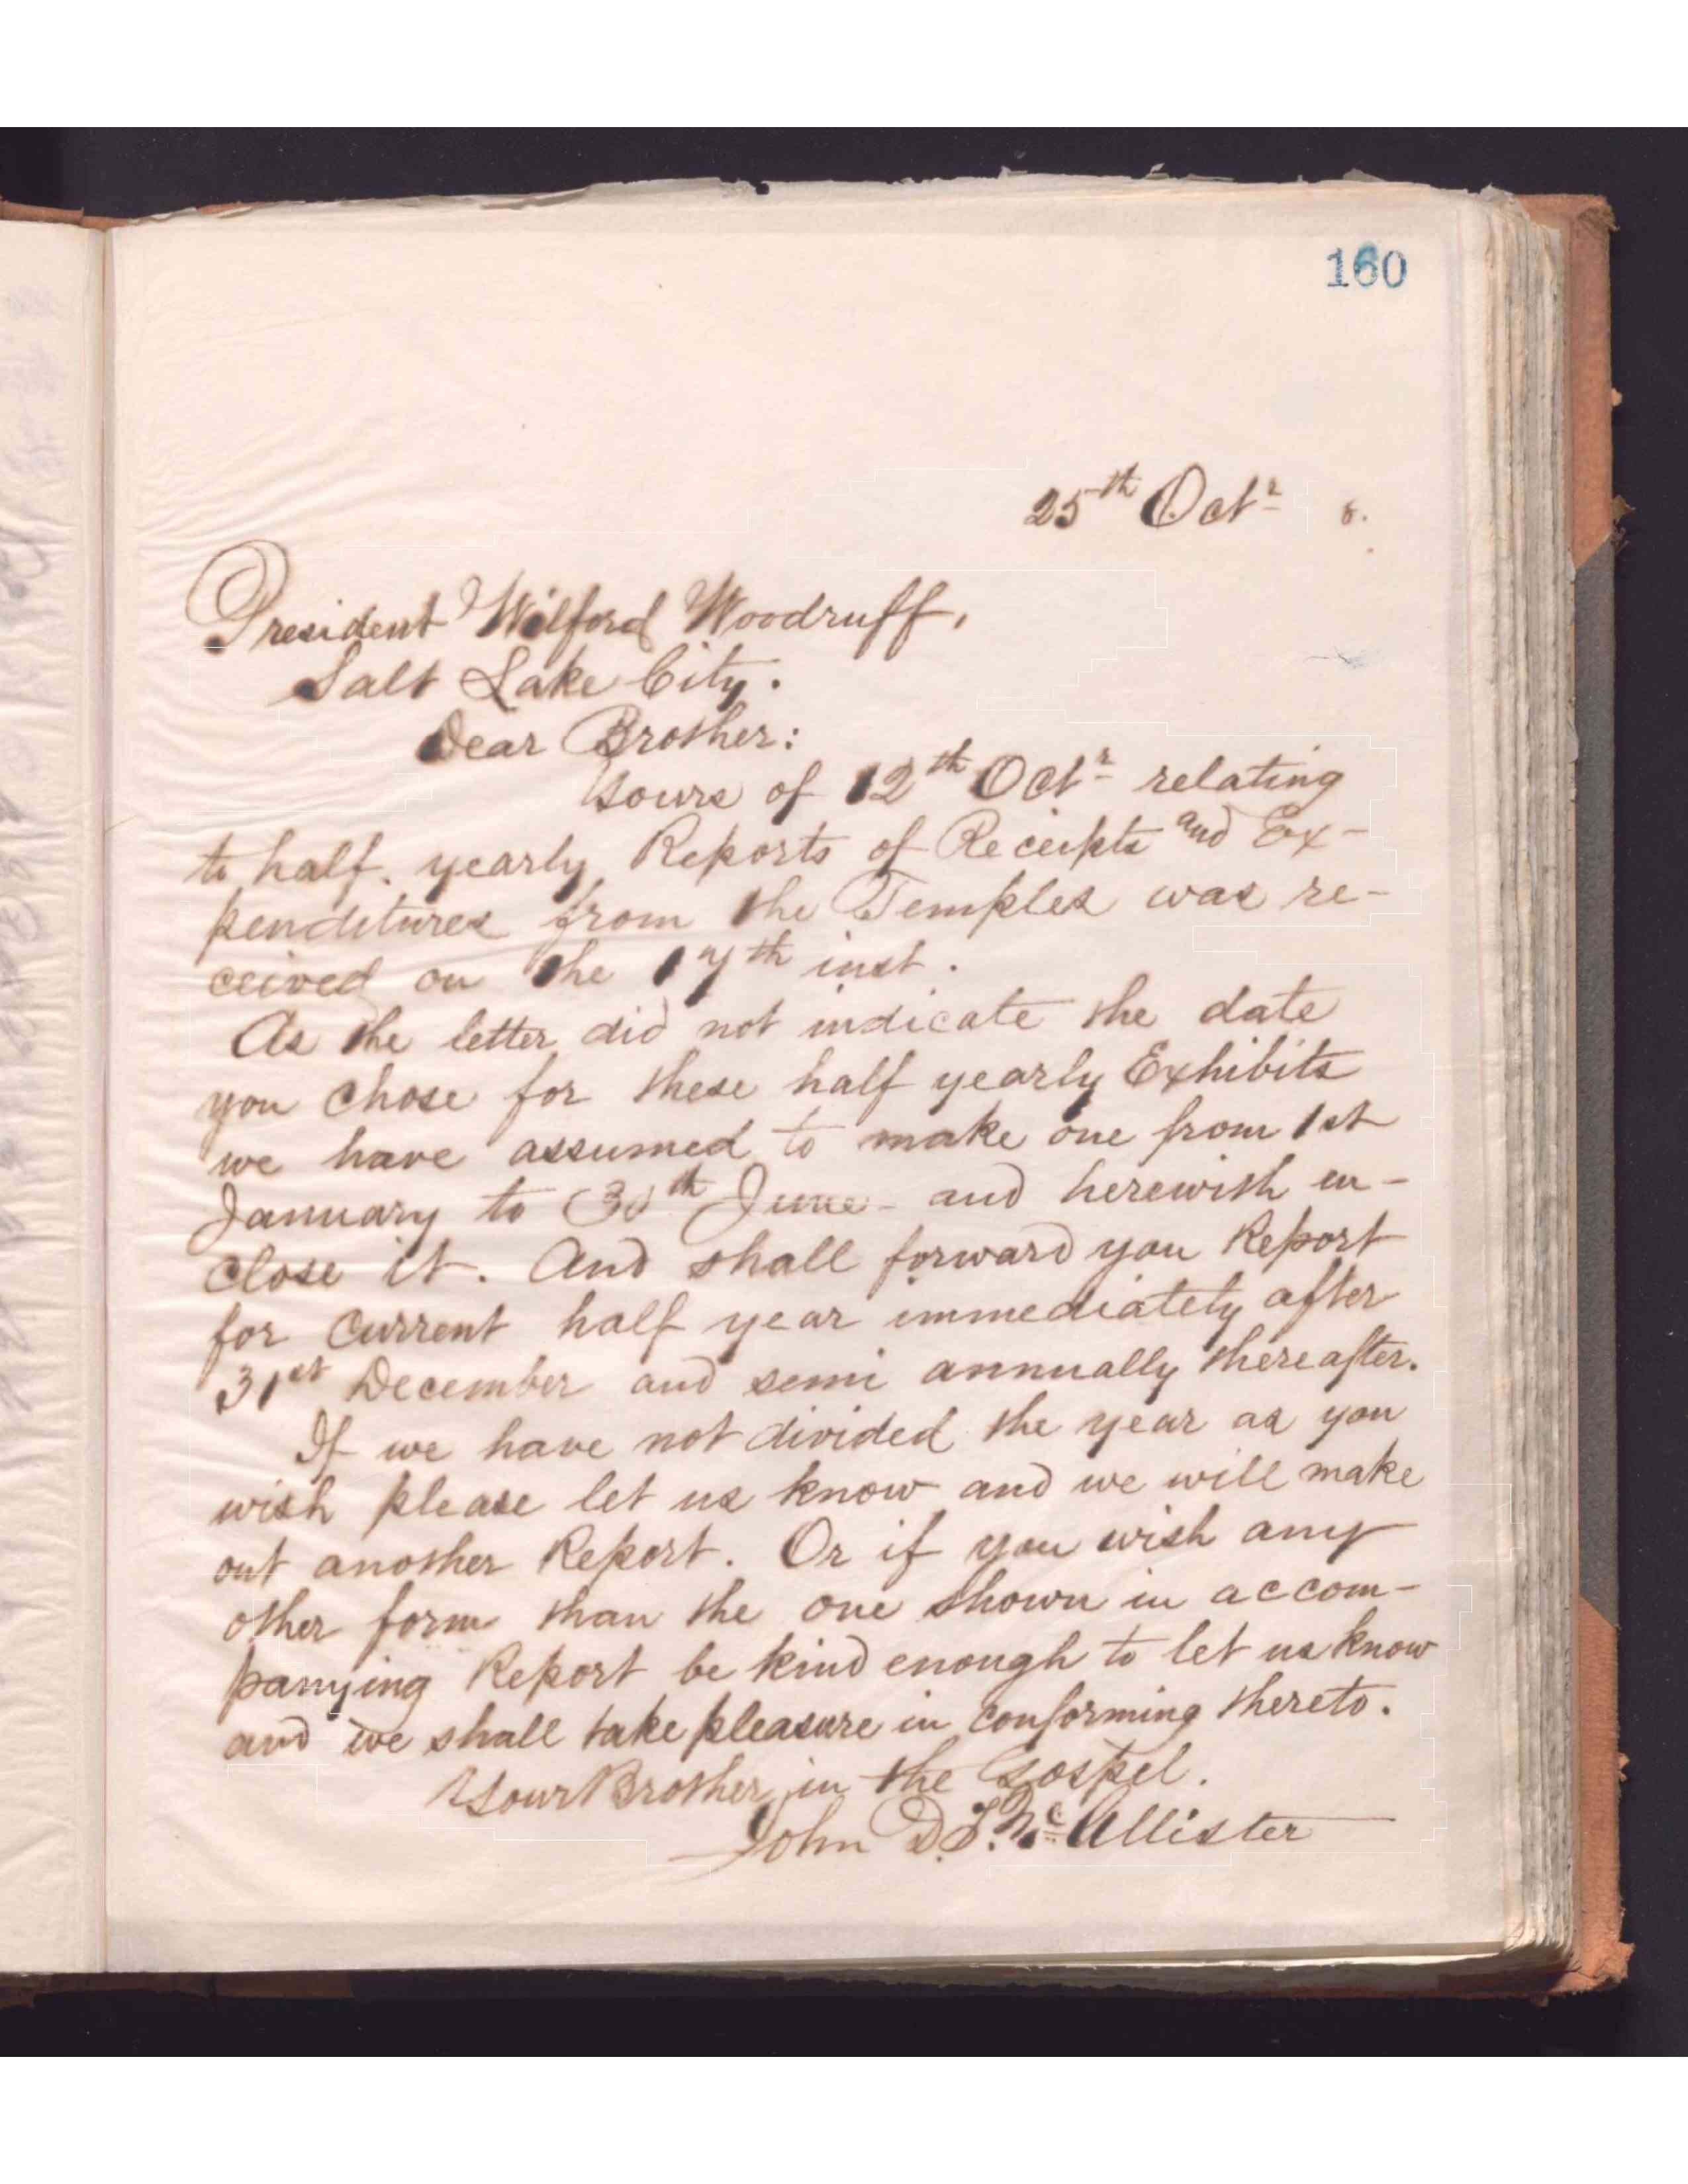 160
25th Octr 8.
President Wilford Woodruff,
Salt Lake City.
Dear Brother:
Yours of 12th Octr relating
to half. yearly Reports of Receipts and Ex-
penditures from the Temples was re-
ceived on the 17th inst.
As the letter did not indicate the date
you chose for these half yearly Exhibits
we have assumed to make one from 1st
January to 30th June - and herewith en-
close it. And shall forward you Report
for current half year immediately after
31st December and semi annually thereafter.
If we have not divided the year as you
wish please let us know and we will make
out another Report. Or if you wish any
other form than the one shown in accom-
panying Report be kind enough to let us know
and we shall take pleasure in conforming thereto.
Your Brother in the Gospel.
John D. T. McAllister